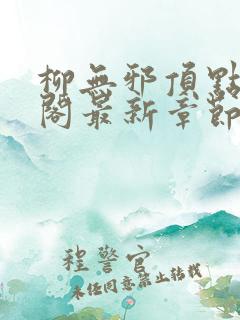 柳無邪頂點
閣最新章節
程警官
未经同意禁止转载